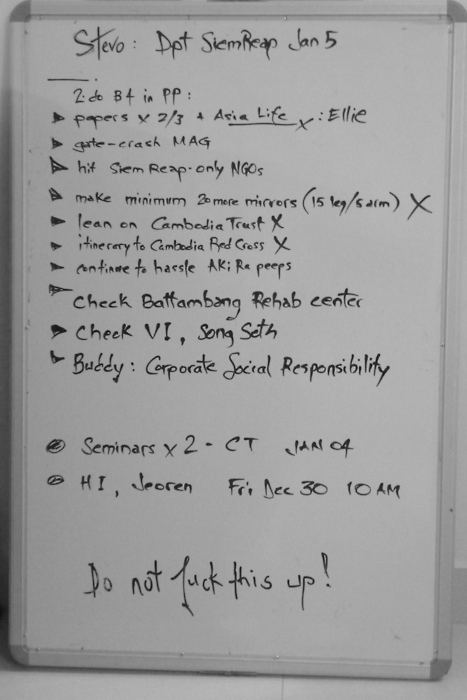 Stevo: Dpt SiemReap Jan 5
2:do B4 in PP:
papers x 2/3 + Asia Life x : Ellie
gate-crash MAG
hit Siem Reap-only NGOs
make minimum 20 more mirrors (15 leg/5 arm) X
lean on Cambodia Trust X
itinerary to Cambodia Red Cross X
continue to hassle AKi Ra peeps
Check Battambang Rehab center
Check VI, Song Seth
Buddy: Corporate Social Responsibility
Seminars x 2 - CT JAN 04
HI, Jeoren Fri Dec 30 10 AM
Do not fuck this up!